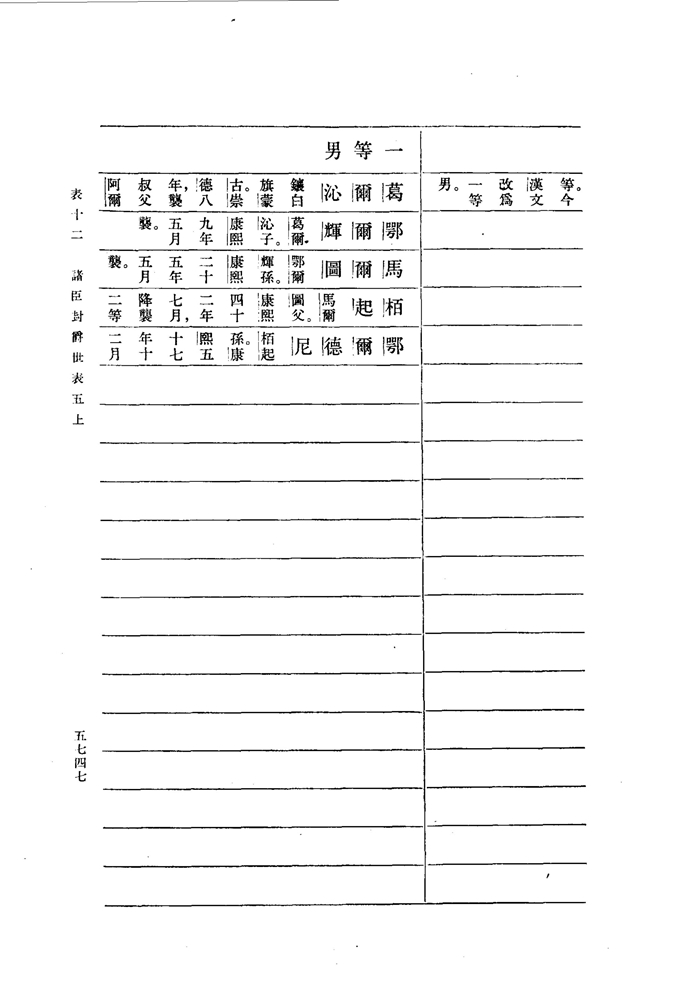 等。今漢文改爲一等男。
一等男
葛爾沁 鑲白旗蒙古。崇德八年,襲叔父阿爾
鄂爾輝 葛爾沁子。康熙九年五月襲。
馬爾圖 鄂爾輝孫。康熙二十五年五月襲。
栢起 馬爾圖父。康熙四十二年七月,降襲二等
鄂爾德尼 栢起孫。康熙五十七年十二月
表十二 諸臣封爵世表五上
五七四七